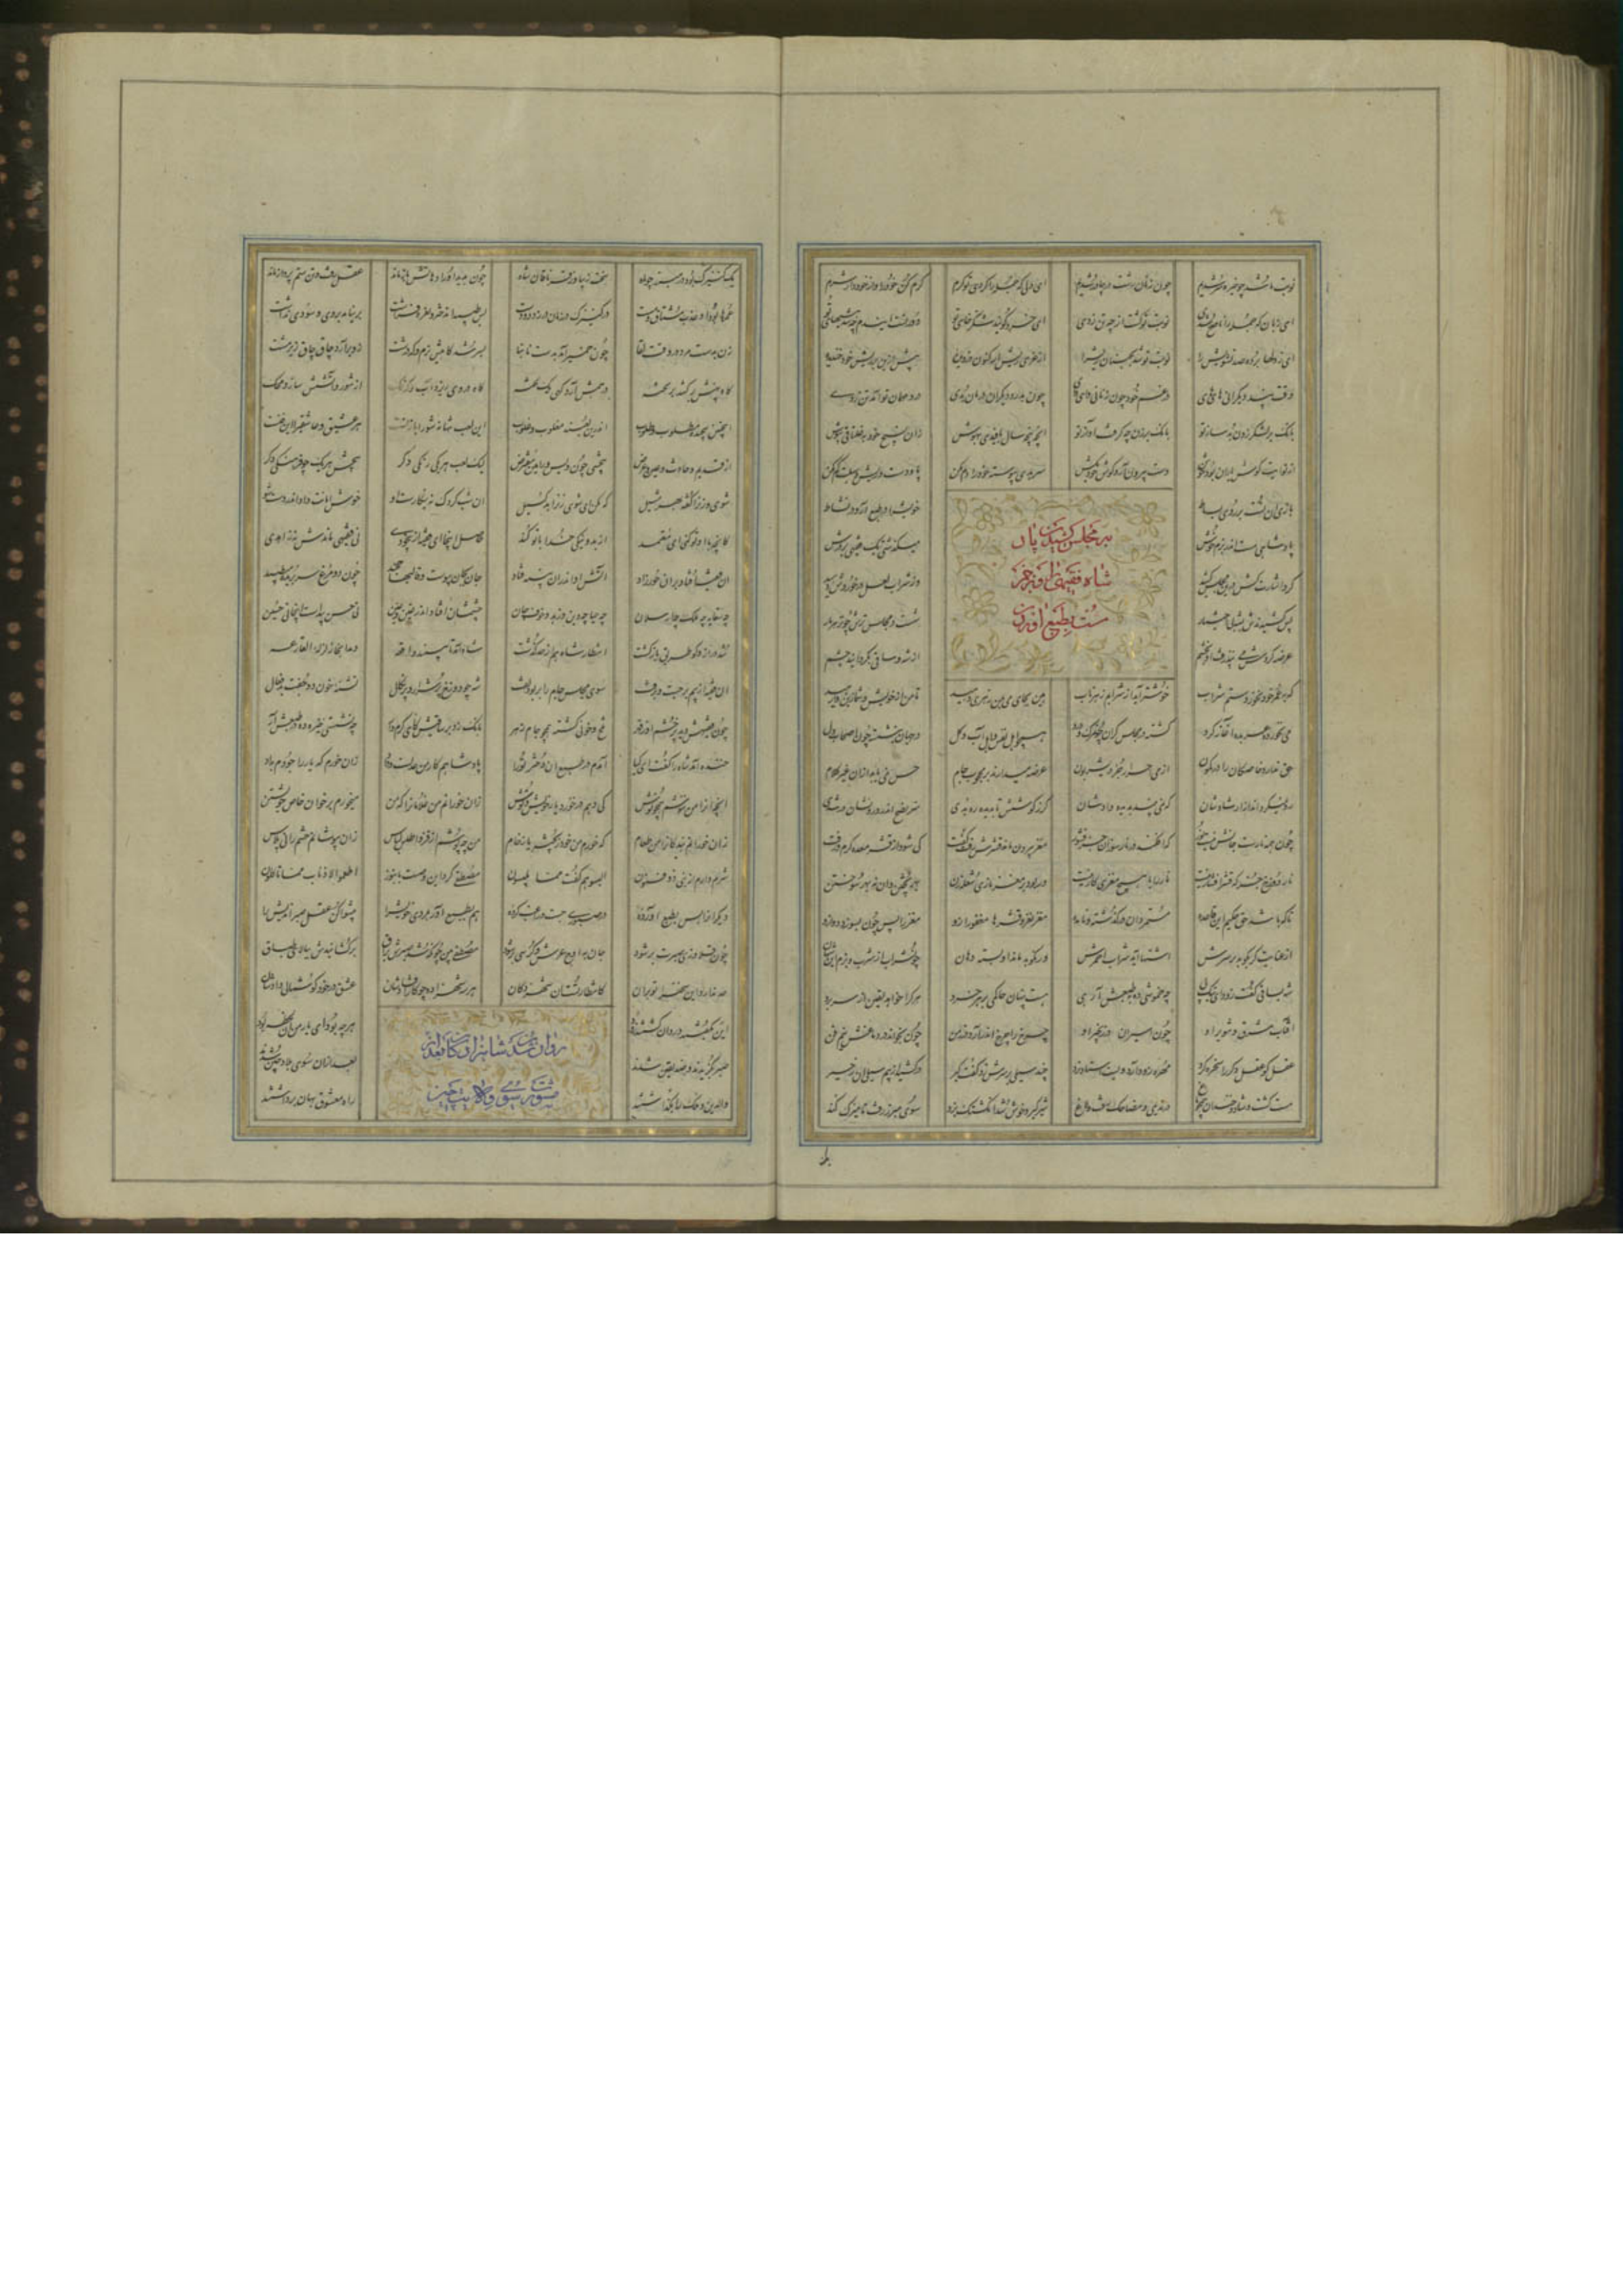 نوبت ما شد چو خیره سر شدیم چون زنان زشت در چادر شدیم ای دلی که جمله را کردی تو گرم گرم کن خود را و از خود دار شرم
ای زبان که جمله را ناصح بدی نوبت تو گشت از چه تن زدی ای خرد کو پند شکرخای تو دور تست این دم چه شد هیهای تو
ای ز دلها برده صد تشویش را نوبت تو شد بجنبان ریش را از غری ریش ار کنون دزدیده پیش ازین بر ریش خود خندیده
وقت پند دیگرانی های های در غم خود چون زنانی وای وای چون بدرد دیگران درمان بدی درد مهمان تو آمد تن زدی
بانگ بر لشکر زدن بد ساز تو بانگ برزن چه گرفت آواز تو آنچه پنجه سال بافیدی بهوش زان نسیج خود بغلتاقی بپوش
از نوایت گوش یاران بود خوش دست بیرون آر و گوش خود بکش سر بدی پیوسته خود را دم مکن پا و دست و ریش و سبلت گم مکن
بازی آن تست بر روی بساط خویش را در طبع آر و در نشاط
بمجلس کشیدن پادشاه فقیهی را و بزجر مست بطبع آوردن
پادشاهی مست اندر بزم خوش میگذشت آن یک فقیهی بر درش
کرد اشارت کش درین مجلس کشید وز شراب لعل در خورد وی دهید
پس کشیدندش بشه بی اختیار شست در مجلس ترش چون زهرمار
عرضه کردش می نپذرفت او بخشم از شه و ساقی بگردانید چشم
که بعمر خود نخوردستم شراب خوشتر آید از شرابم زهر ناب هین بجای می بمن زهری دهید تا من از خویش و شما زین وارهید
می نخورده عربده آغاز کرد گشته در مجلس گران چون مرگ و درد همچو اهل نفس و اهل آب و گل در جهان بنشسته چون اصحاب دل
حق ندارد خاصگان را در کمون از می احرار جز در یشربون عرضه میدارند بر محجوب جام حس نمی یابد از آن غیر کلام
رو همیگرداند از ارشادشان که نمی بیند بدیده دادشان گر ز گوشش تا بدیده ره بدی سر نصح اندر درونشان در شدی
چون همه نارست جانش نیست نور که افکند در نار سوزان جز قشور مغز بیرون ماند و قشر گفت رفت کی شود از قشر معده گرم و زفت
نار دوزخ جز که قشر افشار نیست نار را با هیچ مغزی کار نیست ور بود بر مغز ناری شعله زن بهر پختن دان نه بهر سوختن
تا که باشد حق حکیم این قاعده مستمر دان در گذشته و نامده مغز نغز و قشرها مغفور ازو مغز را پس چون بسوزد دور ازو
از عنایت گر بکوبد بر سرش اشتها آید شراب احمرش ور نکوبد ماند او بسته دهان چون شراب از شرب و بزم این شهان
شه بساقی گفت ای نیک پی چه خموشی ده بطبعش آر هی هست پنهان حاکمی بر هر خرد هر کرا خواهد بفن از سر برد
آفتاب مشرق و تنویر او چون اسیران در زنجیر او چرخ را چرخ اندر آرد در زمن چون بخواند در دماغش نیم فن
عقل کو عقل دگر را سخره کرد مهره زو دارد ویست استاد نرد چند سیلی بر سرش زد گفت گیر در کشید از بیم سیلی آن زحیر
مست گشت و شاد و خندان همچو باغ در ندیمی و مضاحک رفت و لاغ شیرگیر و خوش شد انگشتک بزد سوی مبرز رفت تا میزک کند
یک کنیزک بود در مبرز چو ماه سخت زیبا و ز قرناقان شاه چون بدید او را دهانش باز ماند عقل رفت و تن ستم پرداز ماند
عمرها بوده عزب مشتاق و مست بر کنیزک در زمان در زد دو دست بس طپید آن دختر و نعره فراشت بر نیامد با وی و سودی نداشت
زن بدست مرد در وقت لقا چون خمیر آمد بدست نانبا بسرشد گاهیش نرم و گه درشت زو برآرد چاق چاقی زیر مشت
گاه پهنش بر کشد بر تخته درهمش آرد گهی یک لخته گاه در وی ریزد آب و گه نمک از تنور و آتشش سازد محک
این چنین پیچند مطلوب و طلوب اندرین لعبند مغلوب و غلوب این لعب تنها نه شو را با زنست هر عشیق و عاشقی را این فنست
از قدیم و حادث و عین و عرض پیچشی چون ویس و رامین مفترض لیک لعب هر یکی رنگی دگر پیچش هر یک ز فرهنگی دگر
شوی و زن را گفته شد بهر مثیل که مکن ای شوی زن را بد گسیل آن شب گردک نه ینگا دست او خوش امانت داد اندر دست تو
کانچه با او تو کنی ای معتمد از بد و نیکی خدا با تو کند حاصل اینجا این فقیه از بیخودی نی عفیفی ماندش نی زاهدی
آن فقیه افتاد بر آن حورزاد آتش او اندر آن پنبه فتاد جان بجان پیوست و قالبها چخید چون دو مرغ سر بریده میطپید
چه سقایه چه ملک چه ارسلان چه حیا چه دین چه زهد و خوف جان چشمشان افتاد اندر عین و غین نی حسن پیداست اینجا نی حسین
شد دراز و کو طریق بازگشت انتظار شاه هم از حد گذشت شاه آمد تا ببیند واقعه دید آنجا زلزله القارعه
آن فقیه از بیم برجست و برفت سوی مجلس جام را بربود تفت شه چو دوزخ پر شرار و پر نکال تشنه خون دو جفت بدفعال
چون فقیهش دید پر خشم و قهر تلخ و خونی گشته همچو جام زهر بانگ زد بر ساقیش کای گرم دار چه نشستی خیره ده در طبعش آر
خنده آمد شاه را گفت ای کیا آمدم در طبع آن دختر ترا پادشاهم کار من عدلست و داد زان خورم که یار را جودم بداد
آنچه آنرا من ننوشم همچو نوش کی دهم در خورد یار و خویش و توش زان خورانم من غلامانرا که من میخورم بر خوان خاص خویشتن
زان خورانم بندگانرا از طعام که خورم من خود ز پخته یا ز خام من چو پوشم از خز و اطلس لباس زان بپوشانم حشم را نی پلاس
شرم دارم از نبی ذو فنون البسوهم گفت مما تلبسون مصطفی کرد این وصیت با بنون اطعموا الاذناب مما تأکلون
دیگرانرا بس بطبع آورده در صبوری چست و راغب کرده هم بطبع آور بمردی خویش را پیشوا کن عقل صبراندیش را
چون قلاوزی صبرت پر شود جان باوج عرش و کرسی بر شود مصطفی بین چونکه صبرش شد براق برکشانیدش ببالای طباق
عشق در خود گوشمالی دادشان
روان شدن شاهزادگان بعد از مشورت بسوی ولایت چین
این بگفتند و روان گشتند زود هر چه بود ای یار من آن لحظه بود
صبر بگزیدند و صدیقین شدند بعد از آن سوی بلاد چین شدند
والدین و ملک را بگذاشتند راه معشوق نهان برداشتند